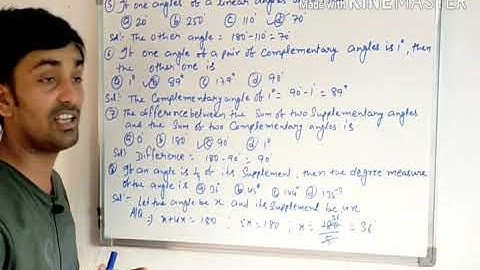 MADE WITH KINEMASTER
⑤ If one angle of a linear angles
ⓐ 20° ⓑ 250 ⓒ 110° ⓓ 70°
Sol:- The other angle = 180-110 = 70°
⑥ If one angle of a pair of Complementary angles is 1°, then
the other one is
ⓐ 1° ⓑ 89° ⓒ 179° ⓓ 90°
Sol: The Complementary angle of 1° = 90-1 = 89°
⑦ The difference between the Sum of two Supplementary angles
and the Sum of two Complementary angles is
ⓐ 0 ⓑ 180 ⓒ 90° ⓓ 1°
Sol: Difference = 180-90° = 90°
⑧ If an angle is ¼ of its Supplement, then the degree measure
of the angle is ⓐ 36 ⓑ 45° ⓒ 144° ⓓ
Sol:- Let the angle be x and its Supplement be 4x
A/Q :) x+4x = 180 ; 5x = 180 ; x = = 36